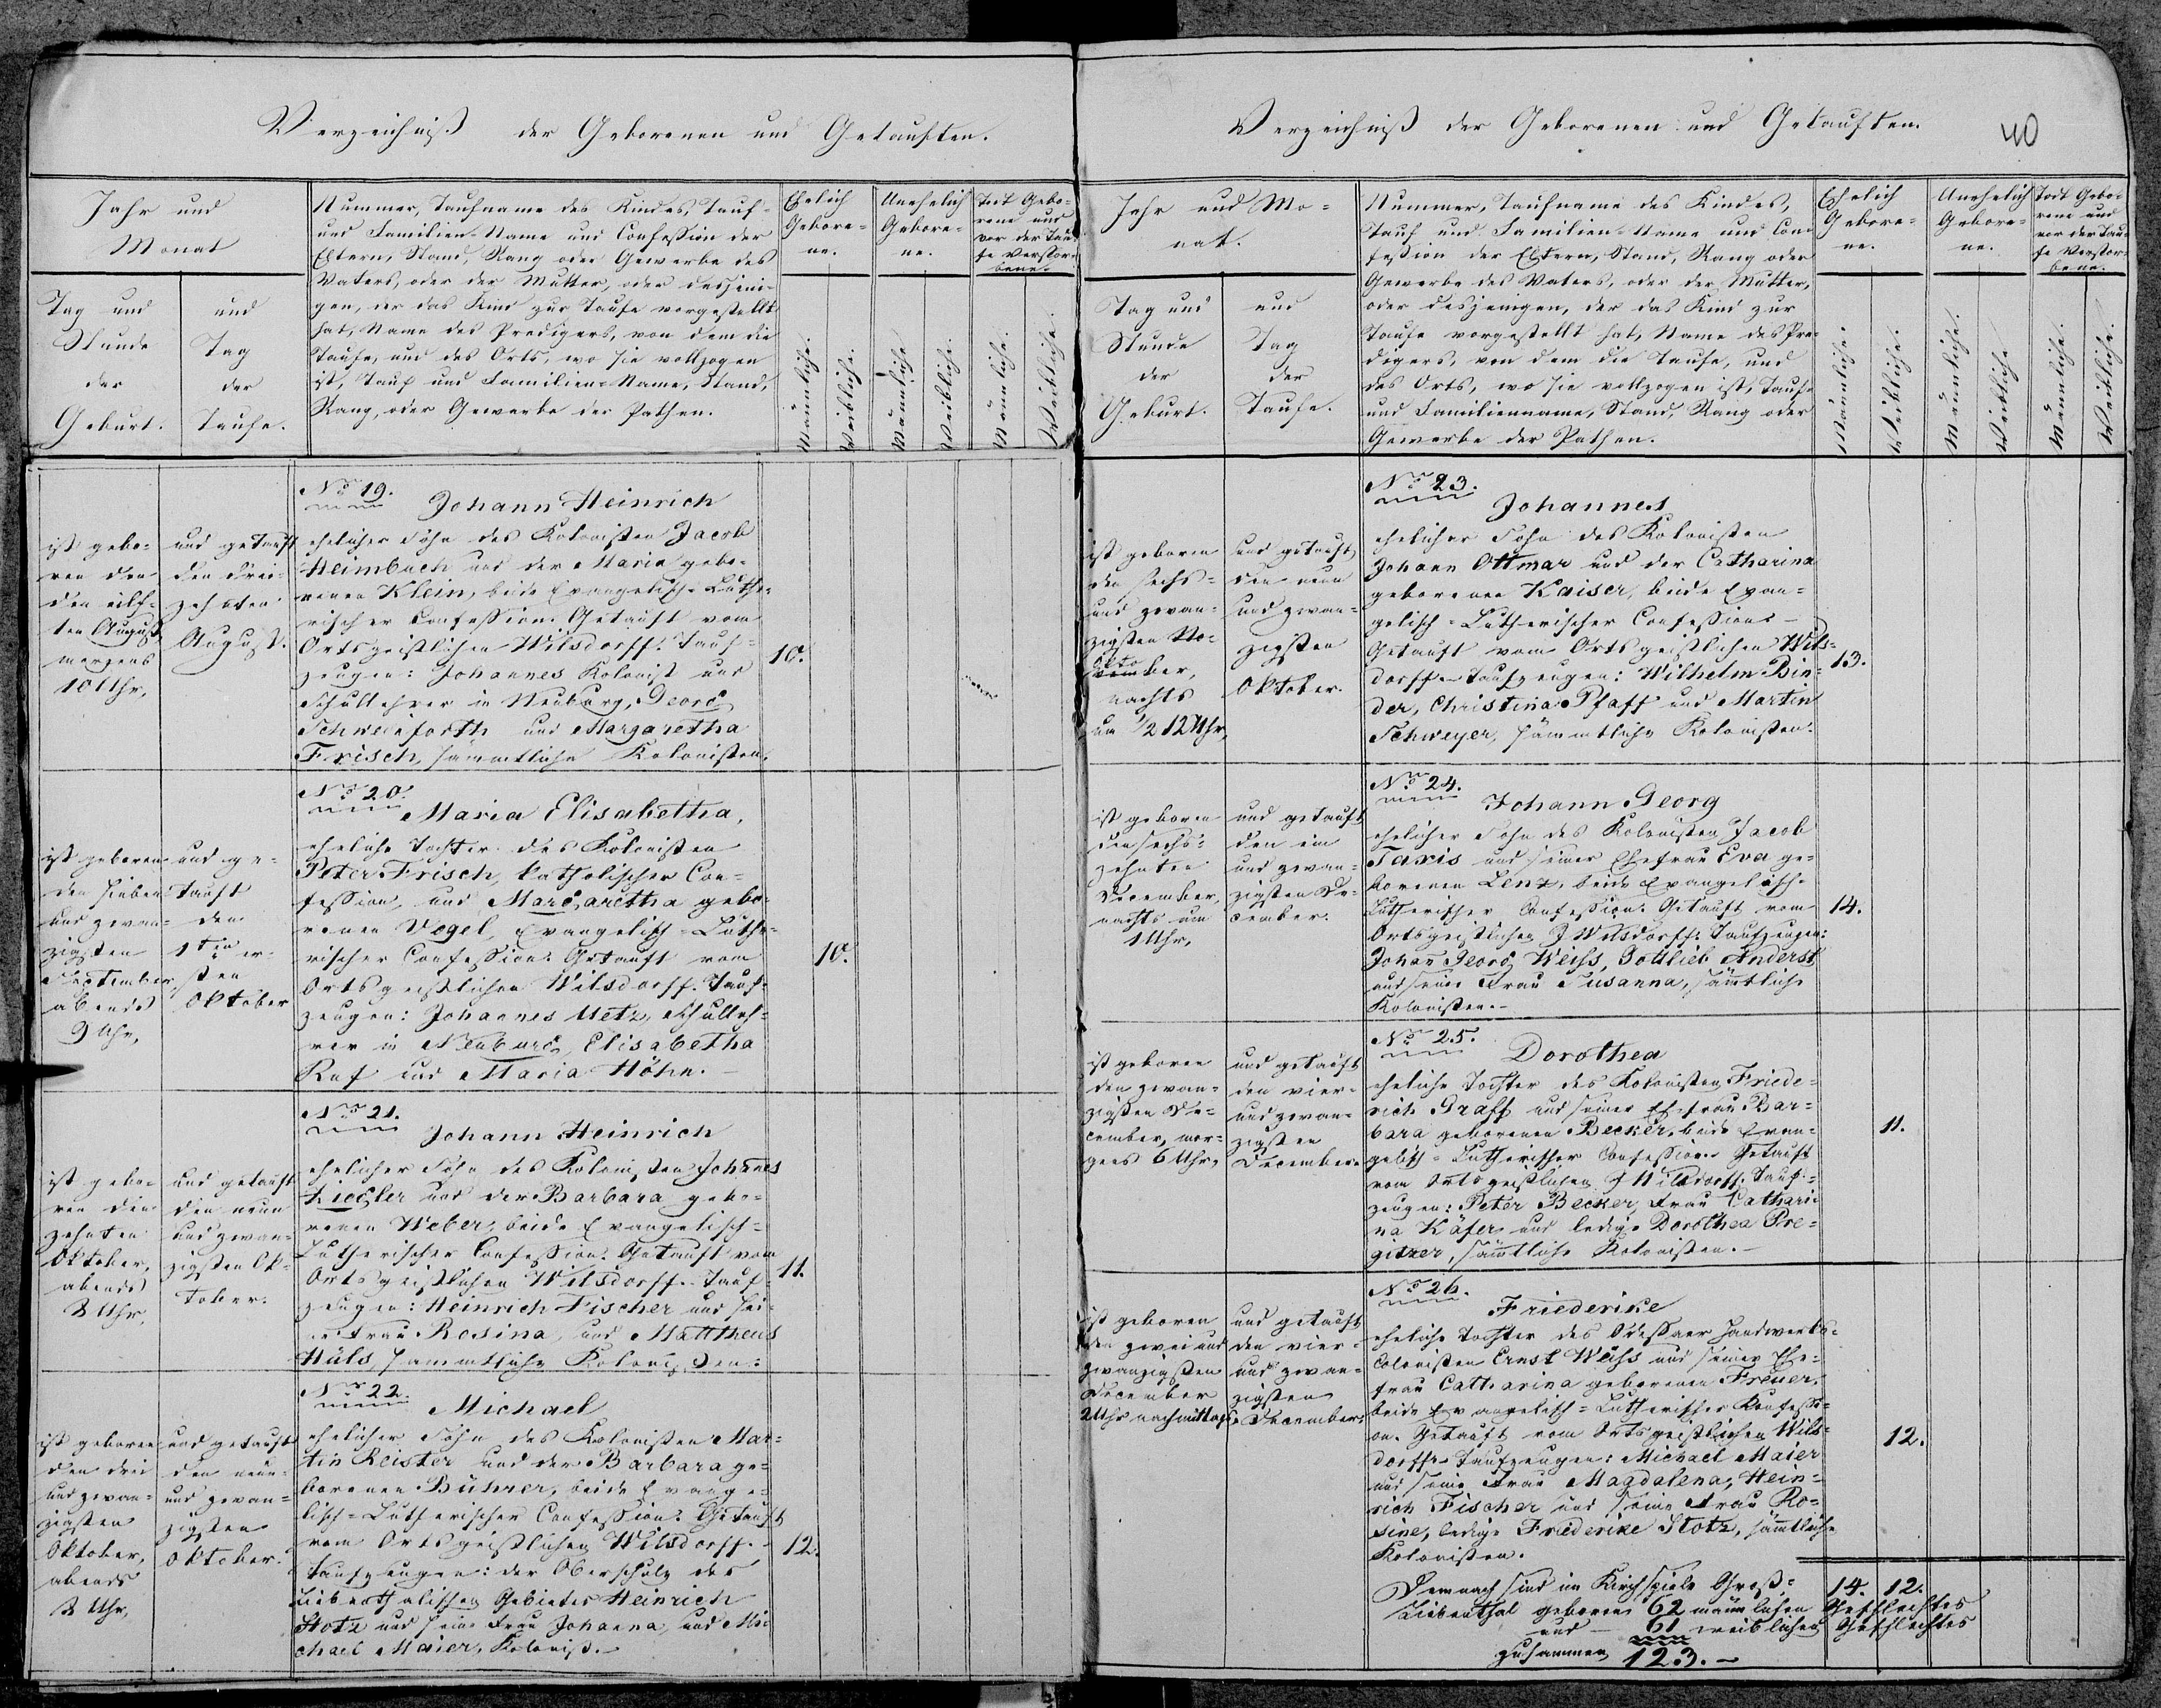 Verzeichniß der Geborenen und Getauften.
Jahr und
Monat
Tag und
Stunde
der
Geburt.
und
Tag
der
Taufe.
Nummer, Taufname des Kindes, Tauf-
und Familien-Name und Confession der
Eltern, Stand, Rang oder Gewerbe des
Vaters, oder der Mutter, oder desjeni-
gen, der das Kind zur Taufe vorgestellt
hat, Name des Predigers, von dem die
Taufe, und des Orts, wo sie vollzogen
ist, Tauf und Familien-Name, Stand,
Rang, oder Gewerbe der Pathen.
Ehelich
Gebore-
ne.
Unehelich
Gebore-
ne.
Todt Gebo-
rene und
vor der Tau-
fe Verstor-
bene.
Männliche.
Weibliche.
Männliche.
Weibliche.
Männliche.
Weibliche.
ist gebo-
ren den
den eilf-
ten August,
morgens
10 Uhr,
und getauft
den drei-
zehnten
August.
No 19.
Johann Heinrich
ehelicher Sohn des Kolonisten Jacob
Heimbuch und der Maria gebo-
renen Klein, beide Evangelisch-Luthe-
rischer Confession. Getauft vom
Ortsgeistlichen Wilsdorff. Tauf-
zeugen: Johannes Kolonist und
Schullehrer in Neuburg, Georg
Schweinforth und Margaretha
Frisch, sämmtliche Kolonisten.
10.
ist geboren
den sieben
und zwan-
zigsten
September
abends
9 Uhr,
und ge-
tauft
den
1ten er-
sten
Oktober
No 20.
Maria Elisabetha,
eheliche Tochter des Kolonisten
Peter Frisch, katholischer Con-
fession, und Margaretha gebo-
renen Vogel, Evangelisch-Luthe-
rischer Confession. Getauft vom
Ortsgeistlichen Wilsdorff. Tauf-
zeugen: Johannes Metz, Schulleh-
rer in Neuburg, Elisabetha
Ruf und Maria Höhn.-
10.
ist gebo-
ren den
zehnten
Oktober,
abends
8 Uhr,
und getauft
den neun
und zwan-
zigsten Ok-
tober.
No 21.
Johann Heinrich
ehelicher Sohn des Kolonisten Johannes
Ziegler und der Barbara gebo-
renen Weber, beide Evangelisch-
Lutherischer Confession. Getauft vom
Ortsgeistlichen Wilsdorff. Tauf-
zeugen: Heinrich Fischer und sei-
ne Frau Rosina, und Mattheus
Hüls, sämmtliche Kolonisten.
11.
ist geboren
den drei
und zwan-
zigsten
Oktober,
abends
8 Uhr,
und getauft
den neun-
und zwan-
zigsten
Oktober.
No 22.
Michael
ehelicher Sohn des Kolonisten Mar-
tin Reister und der Barbara ge-
borenen Bührer, beide Evange-
lisch-Lutherischer Confession. Getauft
vom Ortsgeistlichen Wilsdorff.
Taufzeugen: der Oberschulz des
Liebenthalischen Gebietes Heinrich
Stotz und seine Frau Johanna, und Mi-
chael Maier, Kolonist.-
12.
Verzeichniß der Geborenen und Getauften.
40
Jahr und Mo-
nat.
Tag und
Stunde
der
Geburt.
und
Tag
der
Taufe.
Nummer, Taufname des Kindes,
Tauf und Familien-Name und Con-
fession der Eltern, Stand, Rang oder
Gewerbe des Vaters, oder der Mutter,
oder desjenigen, der das Kind zur
Taufe vorgestellt hat, Name des Pre-
digers, von dem die Taufe, und
des Orts, wo sie vollzogen ist, Tauf-
und Familienname, Stand, Rang oder
Gewerbe der Pathen.
Ehelich
Gebore-
ne.
Unehelich
Gebore-
ne.
Todt Gebo-
rene und
vor der Tau-
fe Verstor-
bene.
Männliche.
Weibliche.
Männliche.
Weibliche
Männliche.
Weibliche.
ist geboren
den sechs-
und zwan-
zigsten
Okto
ber,
nachts
um 1/2 12 Uhr,
und getauft
den neun
und zwan-
zigsten
Oktober.
No 23.
Johannes
ehelicher Sohn des Kolonisten
Johann Ottmar und der Catharina
geborenen Kaiser, beide Evan-
gelisch-Lutherischer Confession.-
Getauft vom Ortsgeistlichen Wils-
dorff.- Taufzeugen: Wilhelm Bin-
der, Christina Pfaff und Martin
Schweyer, sämmtliche Kolonisten.
13.
ist geboren
den sechs-
zehnten
December,
nachts um
1 Uhr,
und getauft
den ein
und zwan-
zigsten De-
cember.
No 24.
Johann Georg
ehelicher Sohn des Kolonisten Jacob
Taxis und seiner Ehefrau Eva ge-
borenen Lenz, beide Evangelisch-
Lutherischer Confession. Getauft vom
Ortsgeistlichen J Wilsdorff. Taufzeugen:
Johann Georg Weiss, Gottlieb Anderst
und seine Frau Susanna, sämtliche
Kolonisten.-
14.
ist geboren
den zwan-
zigsten De-
cember, mor-
gens 6 Uhr,
und getauft
den vier-
und zwan-
zigsten
December.
No 25.
Dorothea
eheliche Tochter des Kolonisten Friede-
rich Graff und seiner Ehefrau Bar-
bara geborenen Becker, beide Evan-
gelisch-Lutherischer Confession. Getauft
vom Ortsgeistlichen J Wilsdorff. Tauf-
zeugen: Peter Becker, Frau Cathari-
na Käfer und ledige Dorothea Pre-
gitzer, sämtliche Kolonisten.-
11.
ist geboren
den zwei und
zwanzigsten
December
2 Uhr nachmittags,
und getauft
den vier-
und zwan-
zigsten
December.
No 26.
Friederike
eheliche Tochter des Odessaer Handwerks-
Colonisten Ernst Weiss und seiner Ehe-
frau Catharina geborenen Freuer,
beide Evangelisch-Lutherischer Konfessi-
on. Getauft vom Ortsgeistlichen Wils-
dorff.- Taufzeugen: Michael Maier
und seine Frau Magdalena, Hein-
rich Fischer und seine Frau Ro-
sine, ledige Friederike Stotz, sämtliche
Kolonisten.
12.
Demnach sind im Kirchspiele Groß-
14. 12.
Liebenthal geboren 62 männlichen Geschlechtes
und - 61 weiblichen Geschlechtes
zusammen 123.-